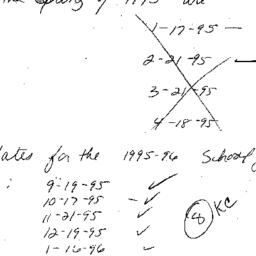 the Spring of 1995 are
1-17-95 —
2-21-95 —
3-21-95
4-18-95
dates for the 1995-96 School
: 9-19-95 ✓
10-17-95 -✓
11-21-95 ✓
12-19-95 ✓
1-16-96 ✓
8 KC